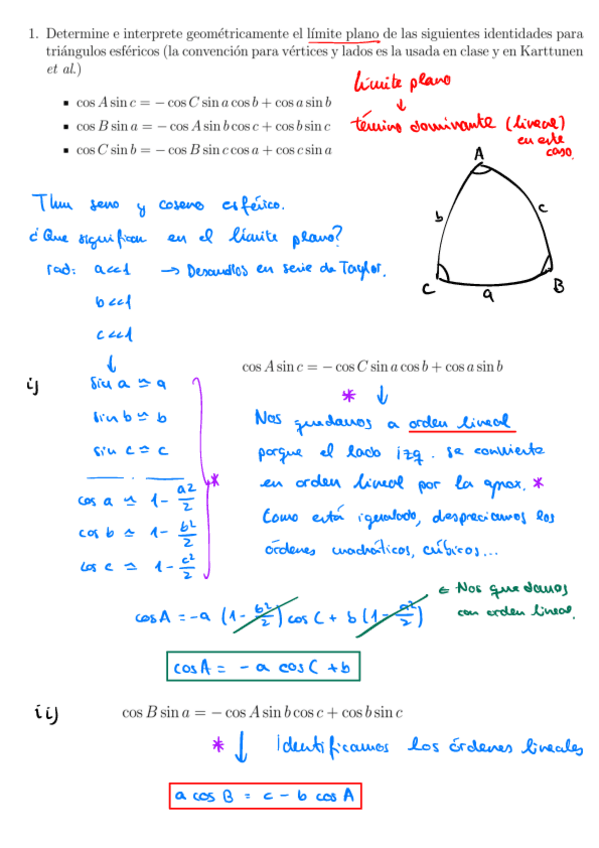 1. Determine e interprete geométricamente el límite plano de las siguientes identidades para
triángulos esféricos (la convención para vértices y lados es la usada en clase y en Karttunen
et al.)
▪ cos A sin c = − cos C sin a cos b + cos a sin b
▪ cos B sin a = − cos A sin b cos c + cos b sin c
▪ cos C sin b = − cos B sin c cos a + cos c sin a
límite plano
↓
término dominante (lineal)
en este
caso.
A
b
c
C
a
B
Thm seno y coseno esférico.
¿Que significan en el límite plano?
rad: a<<1 → Desarrollos en serie de Taylor.
b<<1
c<<1
↓
i)
sin a ≃ a
sin b ≃ b
sin c ≃ c
cos a ≃ 1 - a²/2
cos b ≃ 1 - b²/2
cos c ≃ 1 - c²/2
*
cos A sin c = − cos C sin a cos b + cos a sin b
* ↓
Nos quedamos a orden lineal
porque el lado izq. se convierte
en orden lineal por la aprox. *
Como está igualado, despreciamos los
órdenes cuadráticos, cúbicos...
← Nos quedamos
con orden lineal.
cos A = -a (1 - b²/2) cos C + b (1 - a²/2)
cos A = - a cos C + b
ii)
cos B sin a = − cos A sin b cos c + cos b sin c
* ↓ Identificamos los órdenes lineales
a cos B = c - b cos A